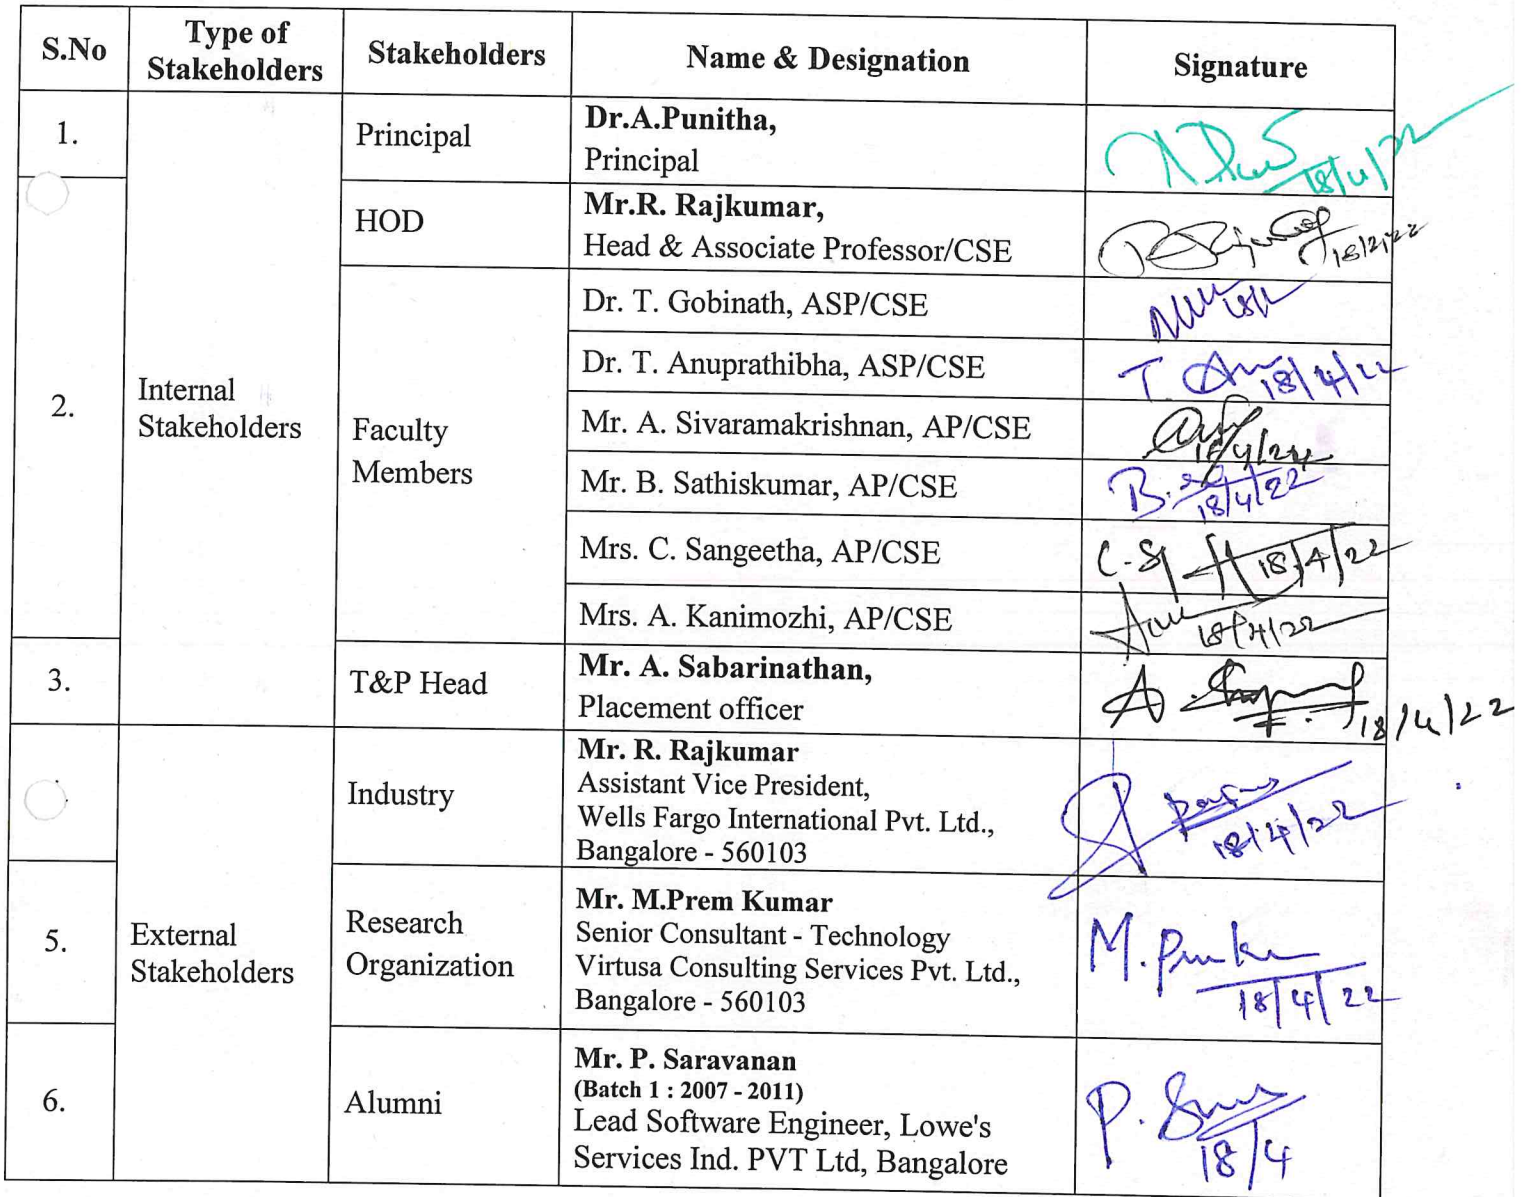 S.No
Type of
Stakeholders
Stakeholders
Name & Designation
Signature
1.
Principal
Dr.A.Punitha,
Principal
18/4/22
HOD
Mr.R. Rajkumar,
Head & Associate Professor/CSE
2.
Internal
Stakeholders
Faculty
Members
Dr. T. Gobinath, ASP/CSE
Dr. T. Anuprathibha, ASP/CSE
T.
18/4/22
Mr. A. Sivaramakrishnan, AP/CSE
Mr. B. Sathiskumar, AP/CSE
B.
18/4/22
Mrs. C. Sangeetha, AP/CSE
18/4/22
Mrs. A. Kanimozhi, AP/CSE
18/4/22
3.
T&P Head
Mr. A. Sabarinathan,
Placement officer
A
18/4/22
Industry
Mr. R. Rajkumar
Assistant Vice President,
Wells Fargo International Pvt. Ltd.,
Bangalore - 560103
18/4/22
5.
External
Stakeholders
Research
Organization
Mr. M.Prem Kumar
Senior Consultant - Technology
Virtusa Consulting Services Pvt. Ltd.,
Bangalore - 560103
M.
18/4/22
6.
Alumni
Mr. P. Saravanan
(Batch 1 : 2007 - 2011)
Lead Software Engineer, Lowe's
Services Ind. PVT Ltd, Bangalore
P.
18/4